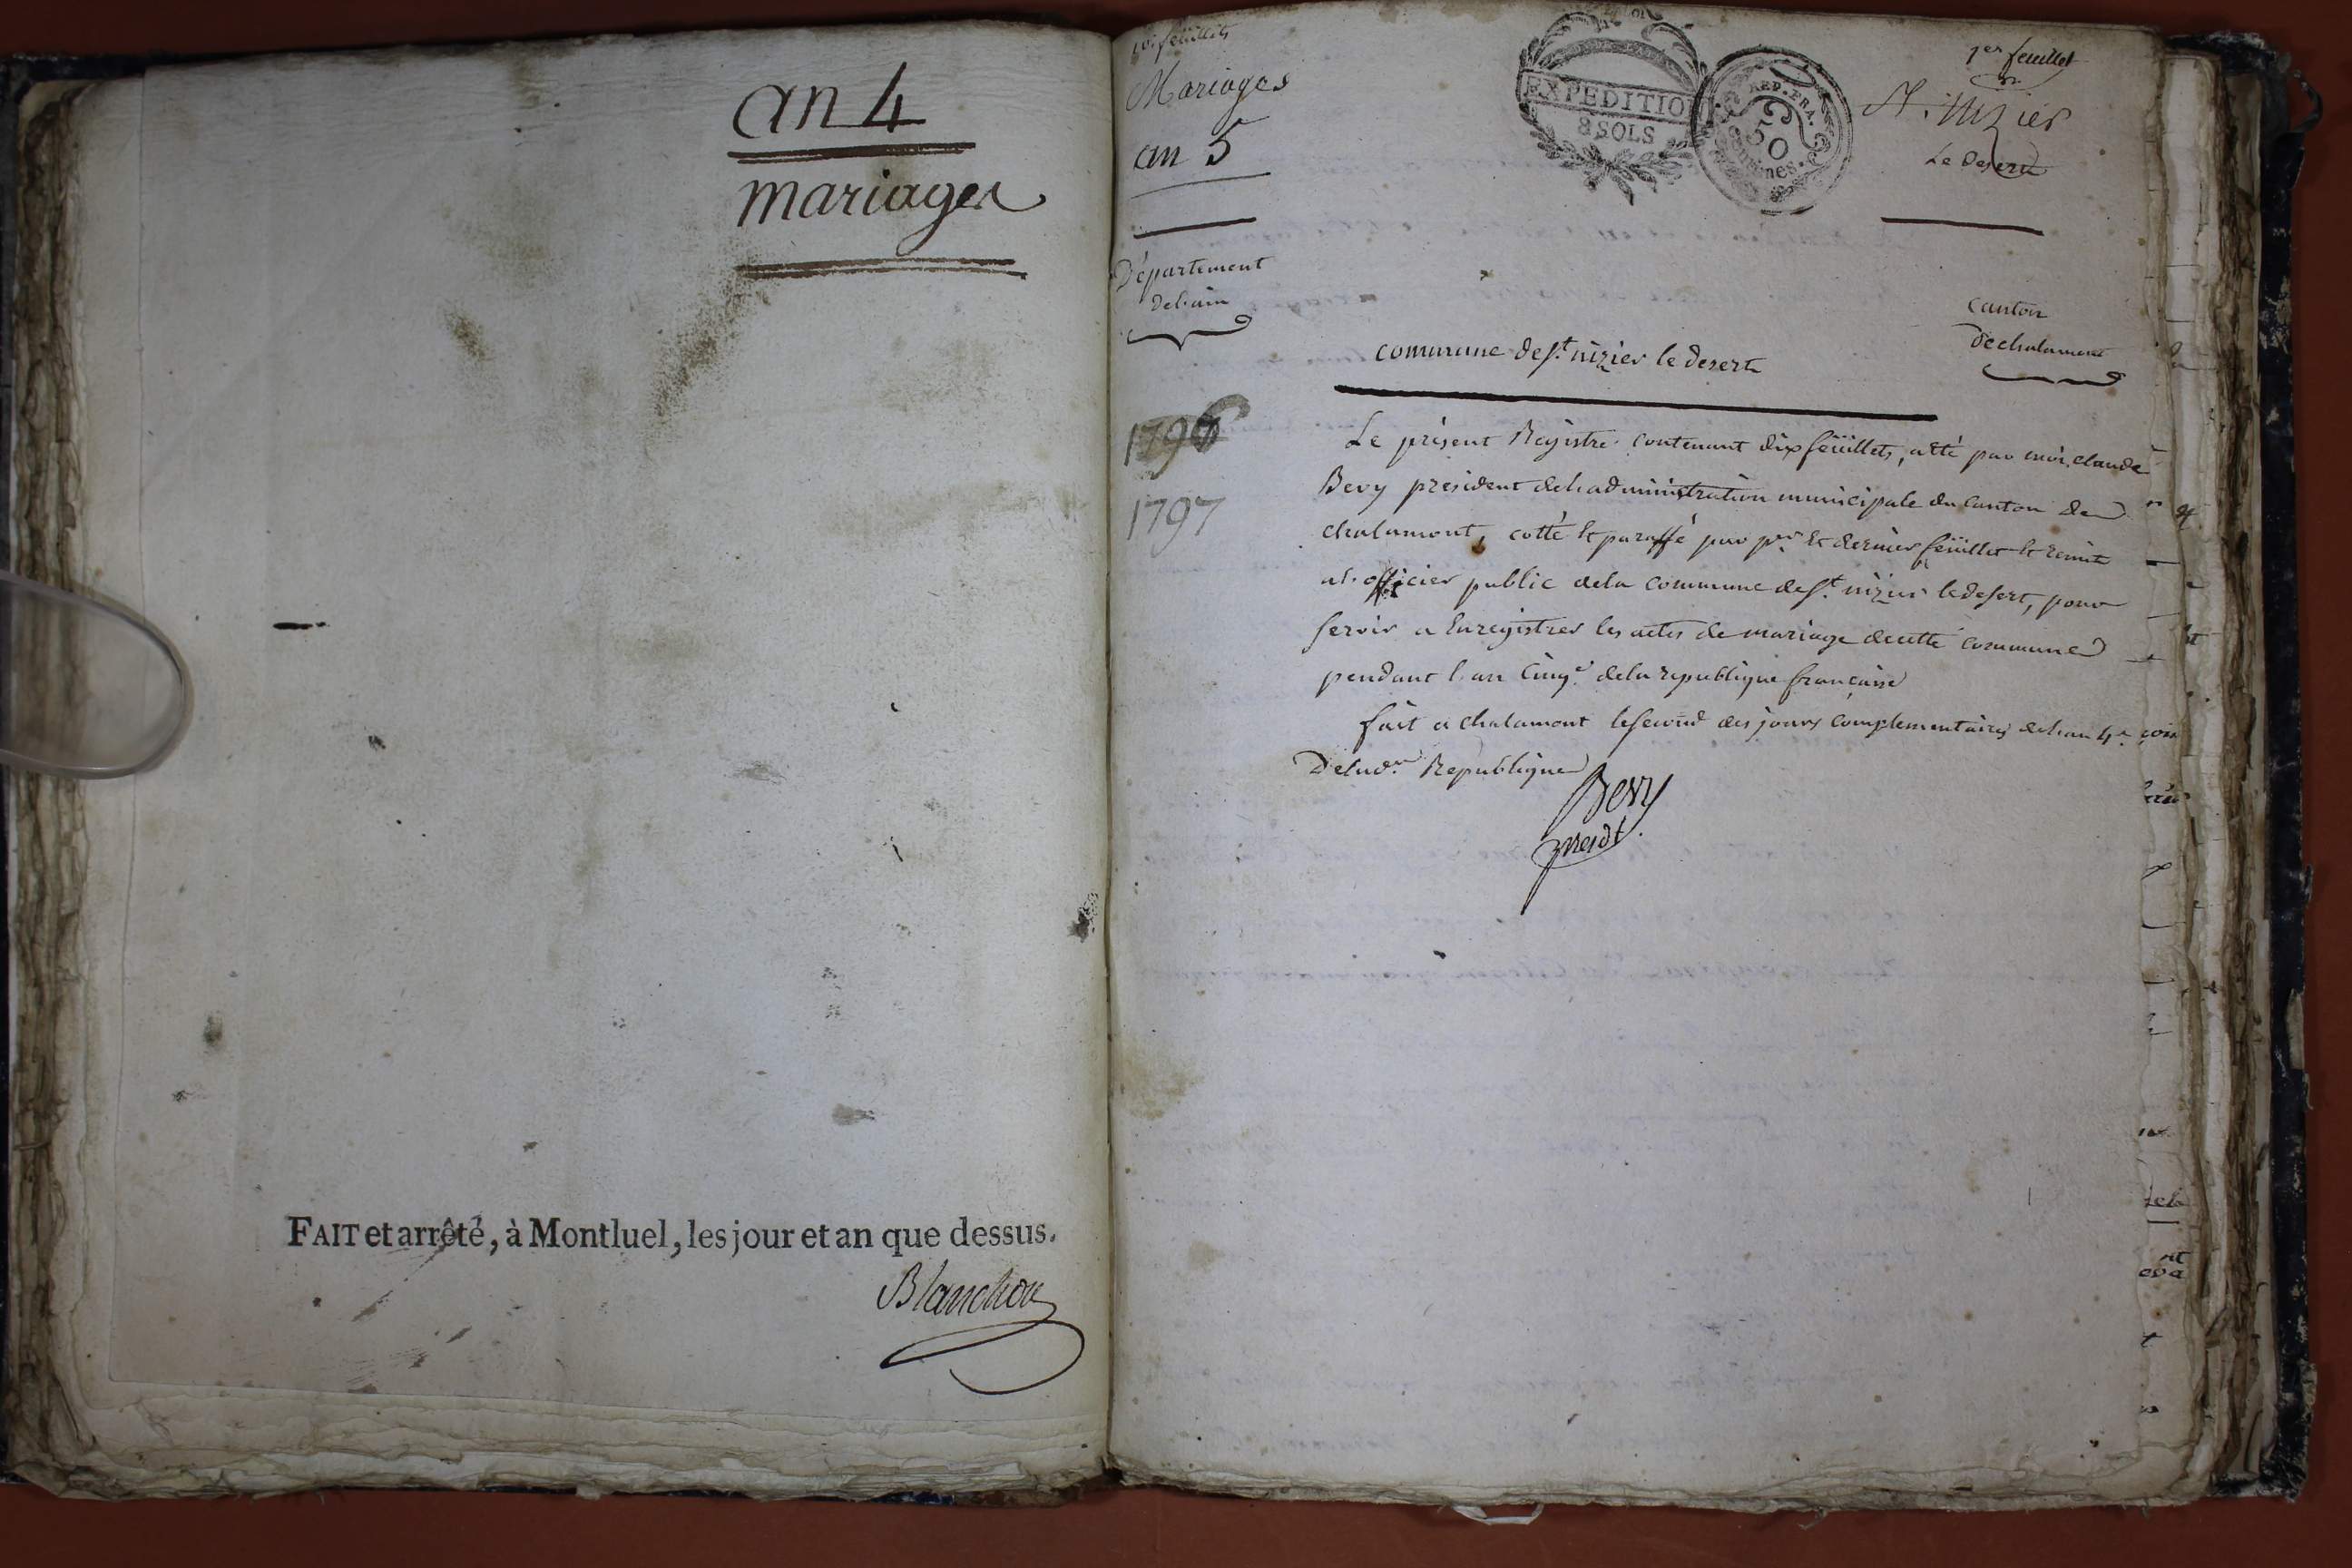 an 4
mariages
FAIT et arrêté, à Montluel, les jour et an que dessus.
Blanchon
10 feüillets
Mariages
an 5
EXPEDITION
8 SOLS
REP. FRA.
50
1er feuillet
St. nizier
Le desert
Département
de l'ain
canton
de chalamont
commune de st. nizier le desert
1796
1797
Le présent Registre contenant dix feüillets, par moi, claude
Bevy président de l'administration municipale du canton de
chalamont, cotté et paraffé par per. et dernier feüillet et remit
a l'officier public de la commune de st. nizier le desert, pour
servir a enregistrer les actes de mariage de cette commune
pendant l'an cinqe. de la republique française
fait a chalamont le second des jours complementaires de l'an 4e.
De lad. Republique
Bevy
presdt.